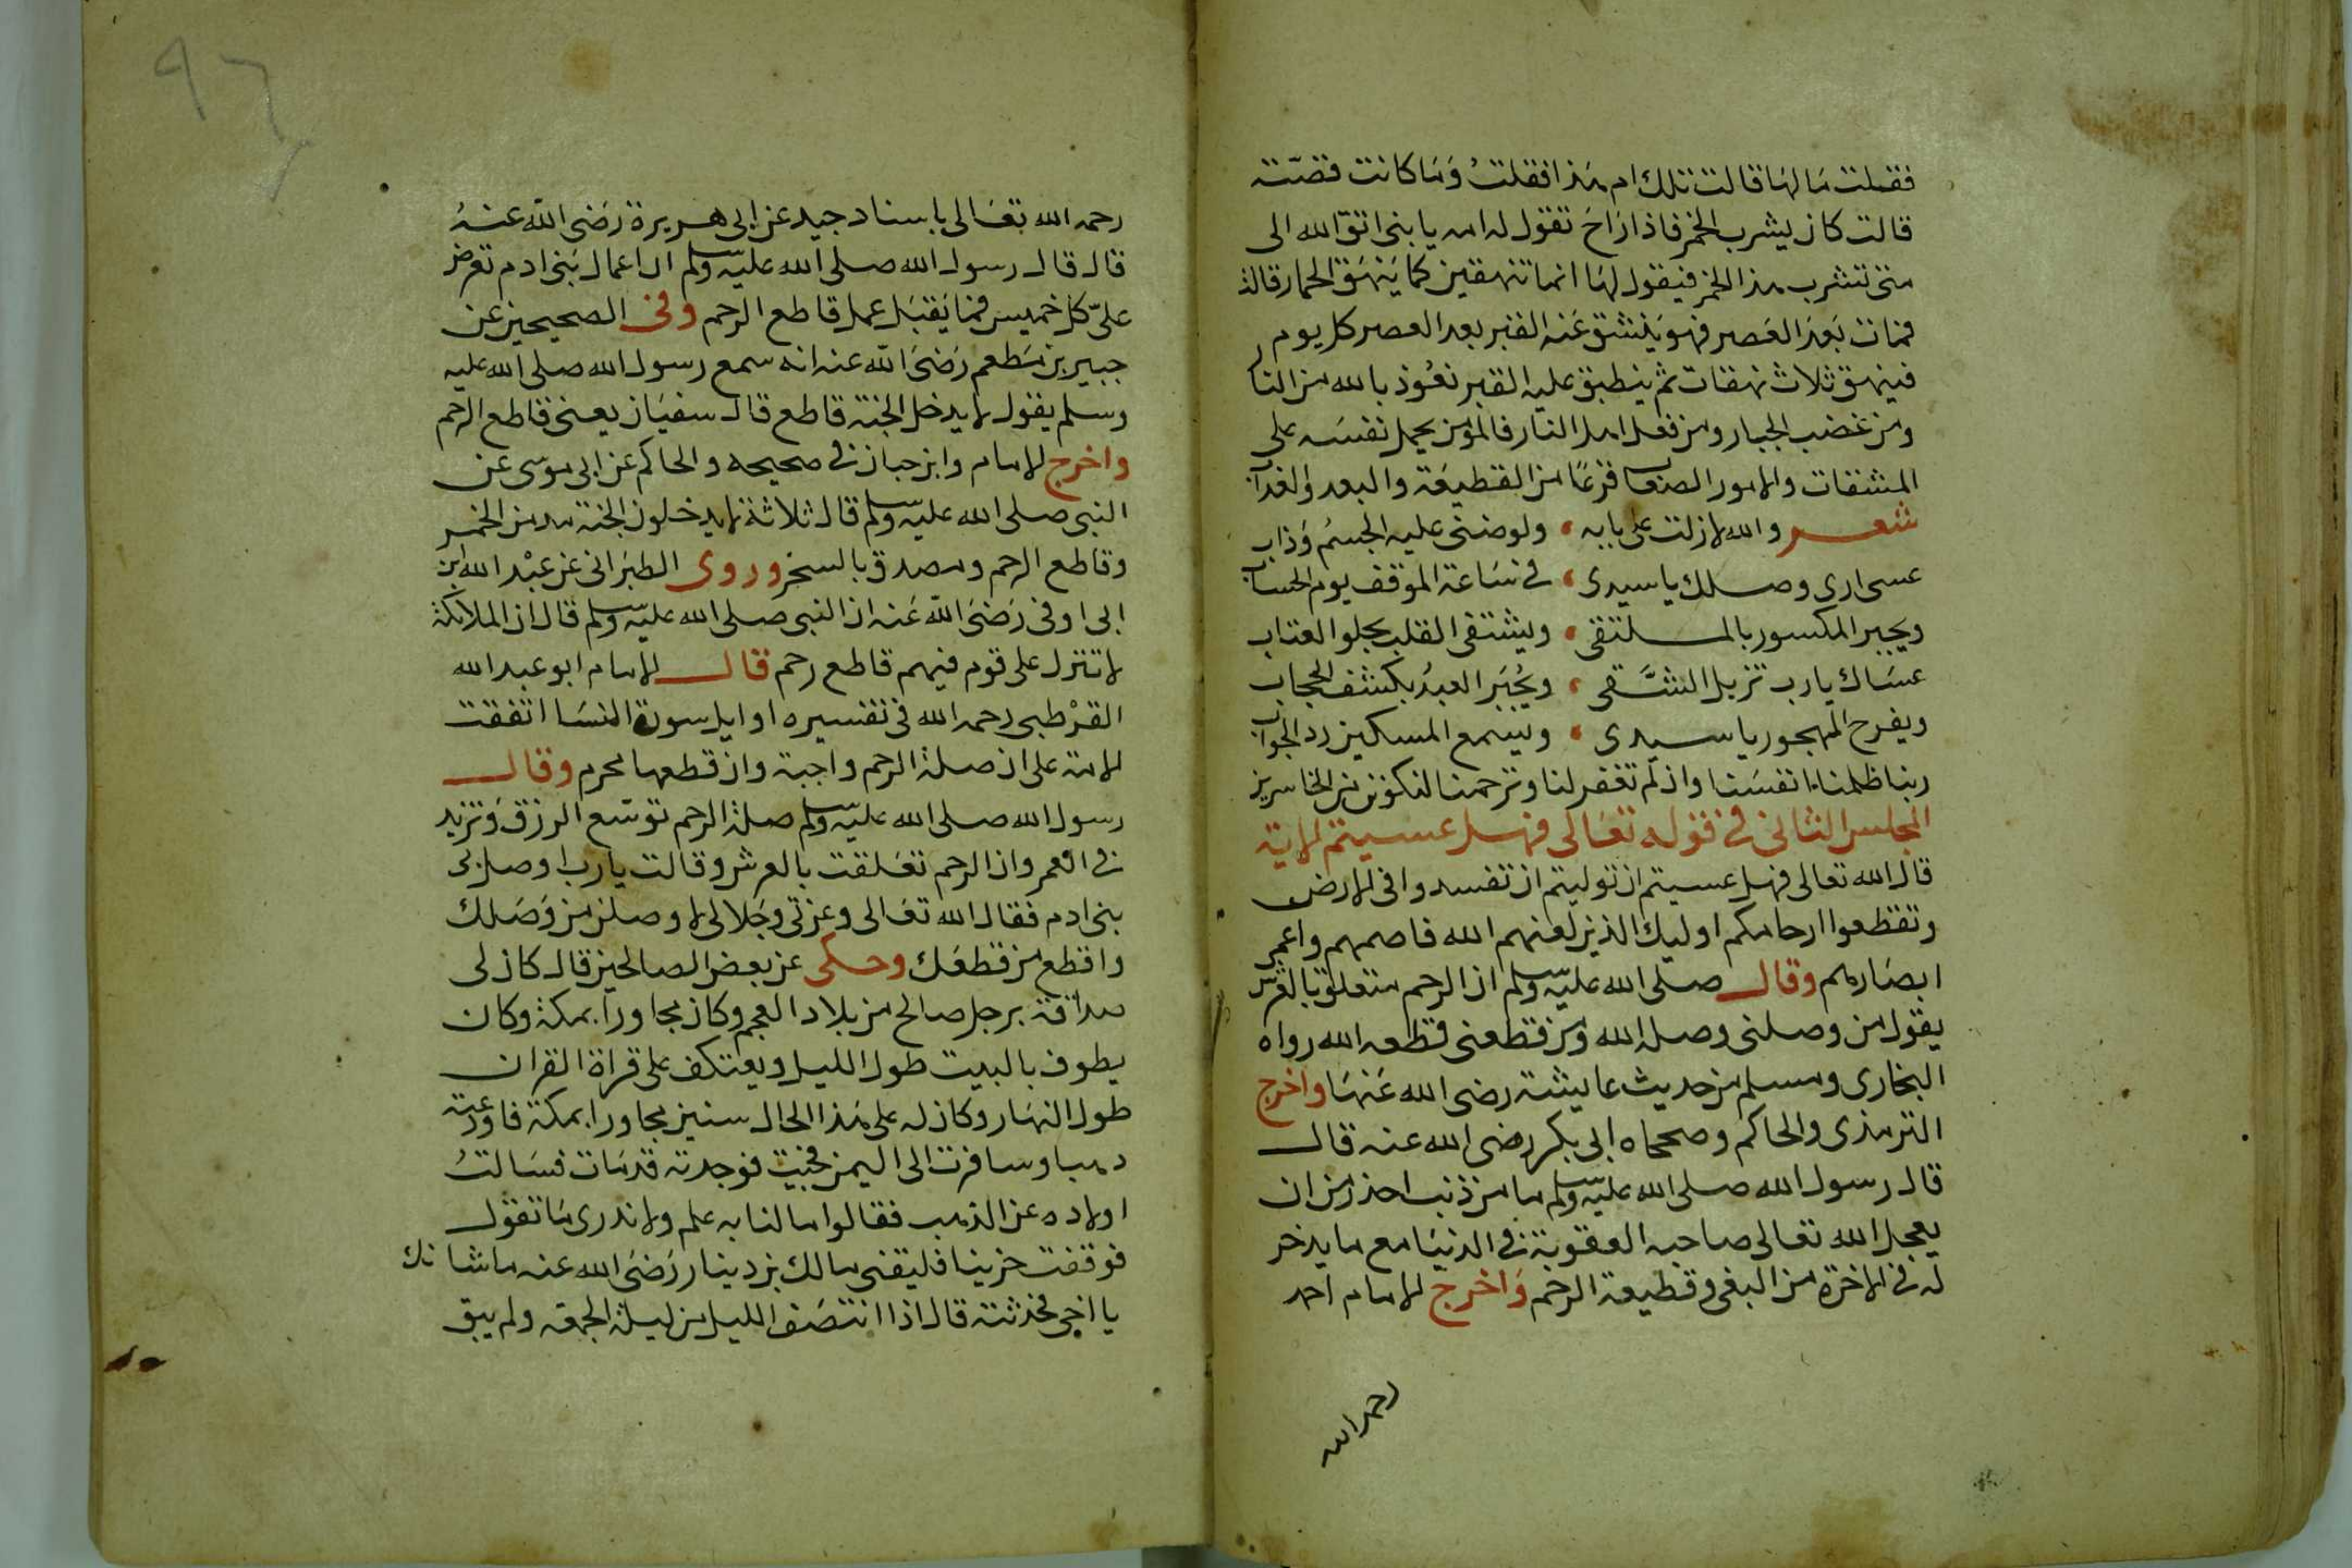 فقلت ما لها قالت تلك ام هذا فقلت وما كانت قصته
قالت كان يشرب الخمر فاذا راح تقول له امه يا بنى اتق الله الى
متى تشرب هذا الخمر فيقول لها انما تنهقين كما ينهق الحمار قالت
فمات بعد العصر فهو ينشق عنه القبر بعد العصر كل يوم
فينهق ثلاث نهقات ثم ينطبق عليه القبر نعوذ بالله من النار
ومن غضب الجبار ومن فعل اهل النار فالمؤمن يحمل نفسه على
المشقات والامور الصعاب فزعا من القطيعة والبعد والعذاب
شعر والله لا زلت على بابه ، ولو ضنى عليه الجسم وذاب
عسى ارى وصلك يا سيدى ، فى ساعة الموقف يوم الحساب
ويجبر المكسور بالملتقى ، ويشتفى القلب بحلو العتاب
عساك يا رب تزيل الشقى ، ويجبر العبد بكشف الحجاب
ويفرح المهجور يا سيدى ، ويسمع المسكين رد الجواب
ربنا ظلمنا انفسنا وان لم تغفر لنا وترحمنا لنكونن من الخاسرين
المجلس الثانى فى قوله تعالى فهل عسيتم الاية
قال الله تعالى فهل عسيتم ان توليتم ان تفسدوا فى الارض
وتقطعوا ارحامكم اوليك الذين لعنهم الله فاصمهم واعمى
ابصارهم وقال صلى الله عليه وسلم ان الرحم متعلق بالعرش
يقول من وصلنى وصله الله ومن قطعنى قطعه الله رواه
البخارى ومسلم من حديث عايشة رضى الله عنها واخرج
الترمذى والحاكم وصححاه ابى بكر رضى الله عنه قال
قال رسول الله صلى الله عليه وسلم ما من ذنب احذر من ان
يعجل الله تعالى صاحبه العقوبة فى الدنيا مع ما يدخر
له فى الاخرة من البغى وقطيعة الرحم واخرج الامام احمد
رحمه الله
٩٦
رحمه الله تعالى باسناد جيد عن ابى هريرة رضى الله عنه
قال قال رسول الله صلى الله عليه وسلم ان اعمال بنى ادم تعرض
علىّ كل خميس فما يقبل عمل قاطع الرحم وفى الصحيحين عن
جبير بن مطعم رضى الله عنه انه سمع رسول الله صلى الله عليه
وسلم يقول لا يدخل الجنة قاطع قال سفيان يعنى قاطع الرحم
واخرج الامام وابن حبان فى صحيحه والحاكم عن ابى موسى عن
النبى صلى الله عليه وسلم قال ثلاثة لا يدخلون الجنة مدمن الخمر
وقاطع الرحم ومصدق بالسحر وروى الطبرانى عن عبد الله بن
ابى اوفى رضى الله عنه ان النبى صلى الله عليه وسلم قال ان الملائكة
لا تتنزل على قوم فيهم قاطع رحم قال الامام ابو عبد الله
القرطبى رحمه الله فى تفسيره اوايل سورة النسا اتفقت
الامة على ان صلة الرحم واجبة وان قطعها محرم وقال
رسول الله صلى الله عليه وسلم صلة الرحم توسع الرزق وتزيد
فى العمر وان الرحم تعلقت بالعرش وقالت يا رب اوصلنى
بنى ادم فقال الله تعالى وعزتى وجلالى لا وصلن من وصلك
واقطع من قطعك وحكى عن بعض الصالحين قال كان لى
صداقة برجل صالح من بلاد العجم وكان مجاورا بمكة وكان
يطوف بالبيت طول الليل ويعتكف على قراة القران
طول النهار وكان له على هذا الحال سنين مجاورا بمكة فاودعته
ذهبا وسافرت الى اليمن فجيت فوجدته قد مات فسالت
اولاده عن الذهب فقالوا ما لنا به علم ولا ندرى ما تقول
فوقفت حزينا فليقنى مالك بن دينار رضى الله عنه ما شانك
يا اخى فحدثته قال اذا انتصف الليل من ليلة الجمعة ولم يبق